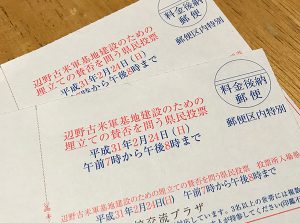 料金後納
郵便
郵便区内特別
辺野古米軍基地建設のための
埋立ての賛否を問う県民投票
平成31年2月24日(日)
午前7時から午後8時まで
料金後納
郵便
郵便区内特別
辺野古米軍基地建設のための
埋立ての賛否を問う県民投票
平成31年2月24日(日)
午前7時から午後8時まで
辺野古米軍基地建設のための埋立ての賛否を問う県民投票 投票所入場券
交流プラザ